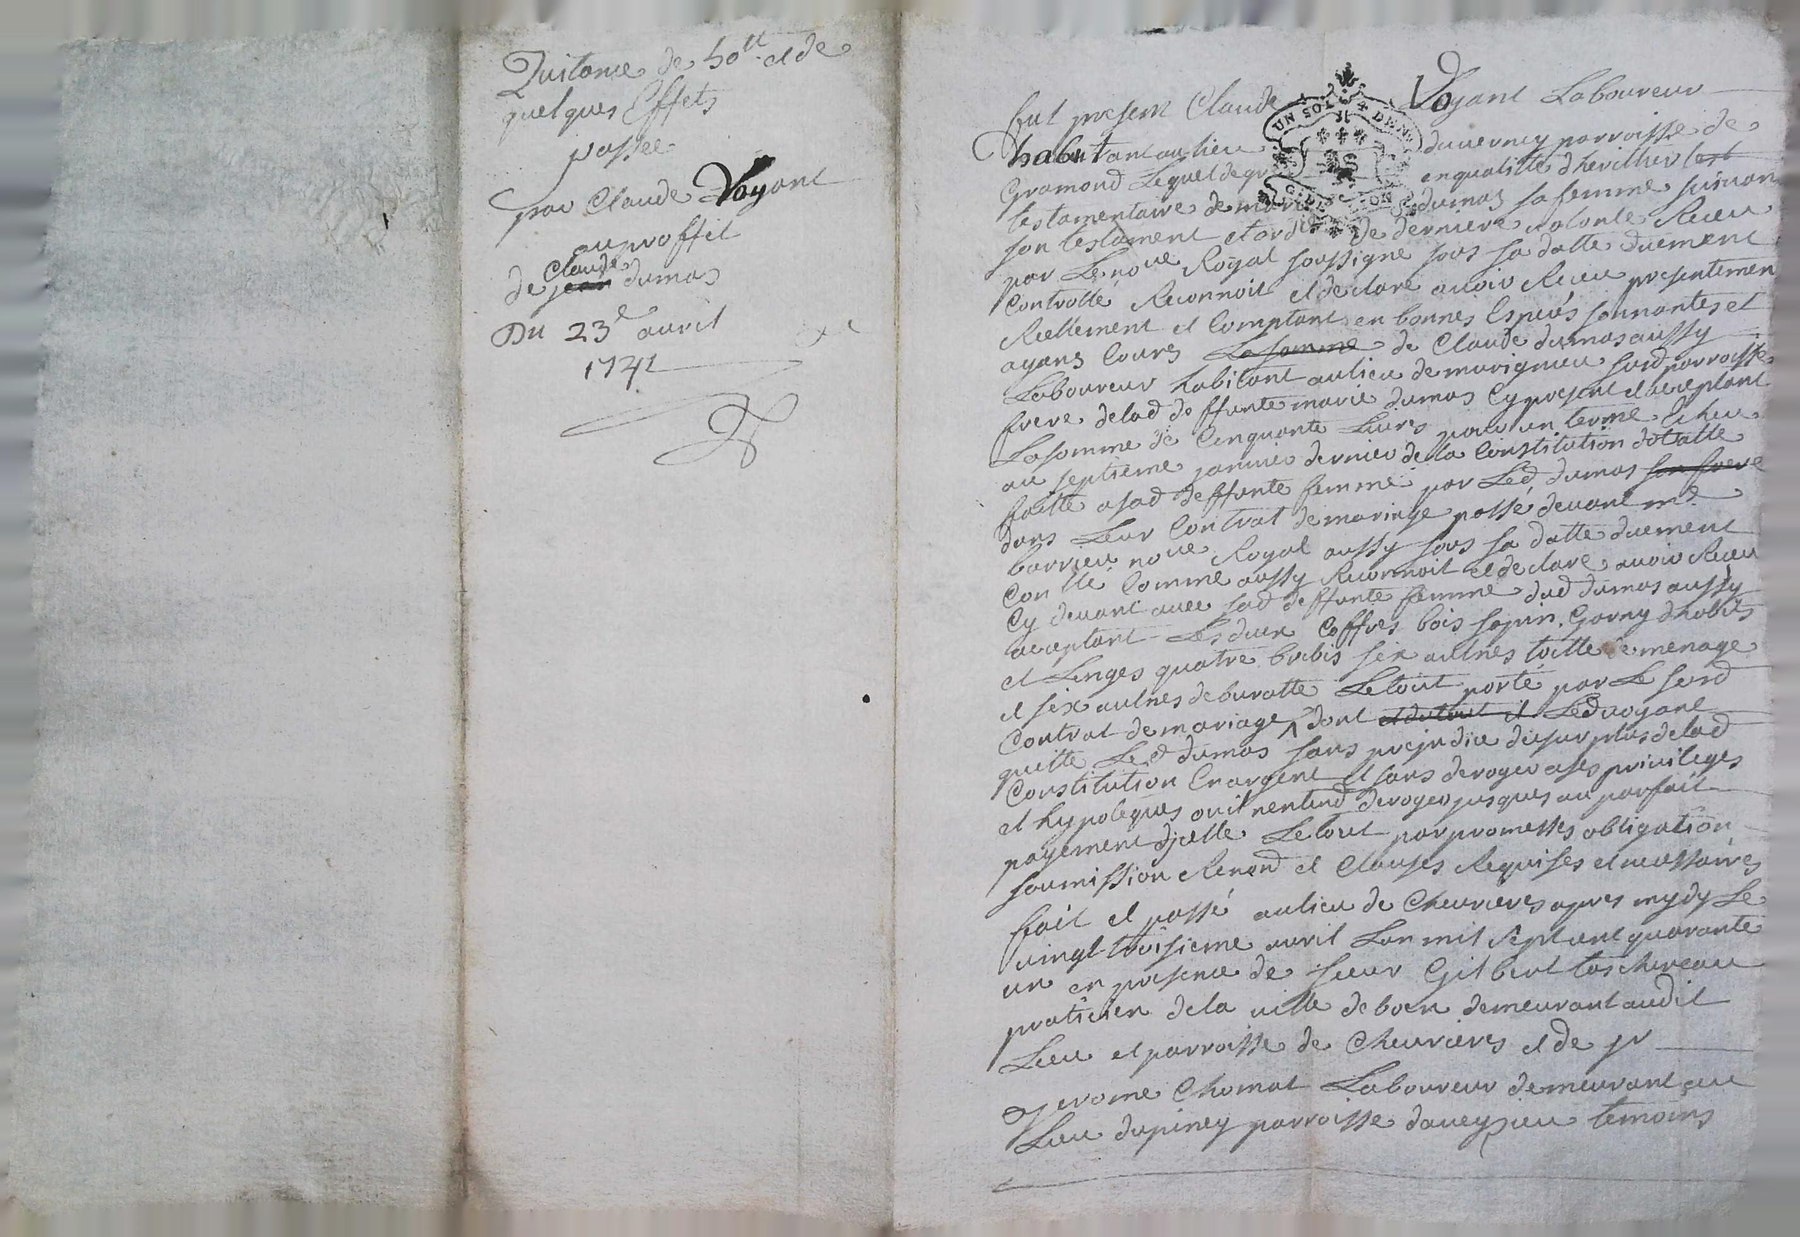 Quitance de 50ᵗᵗ et de
quelques Effets
passée
par Claude Voyant
au proffit
de Claude dumas
Du 23ᵉ avril
1741
fut present Claude Voyant Laboureur
habitant au lieu duverney parroisse de
Gramond Lequel de gré en qualitté d'heritier
testamentaire de marie dumas sa femme suivan
son testament et ordre de derniere volonte Receu
par Le noʳᵉ Royal soussigne sous sa datte duement
Controllé Reconnoit et declare avoir Receu presentemen
Réellement et Comptant en bonnes Especes sonnantes et
ayans Cours La somme de Claude dumas aussy
Laboureur habitant au lieu de marignieu susd parroisse
frere de lad deffunte marie dumas Cy present et aceptant
La somme de Cinquante Livres pour un terme Echeu
au septieme janvier dernier de la Constitution dottalle
faitte a sad deffunte femme par Led dumas son frere
dans Leur Contrat de mariage passé devant mᵉ
barrieu noʳᵉ Royal aussy sous sa datte duement
Conᵗˡˡᵉ Comme aussy Reconnoit et declare avoir Receu
Cy devant avec sad deffunte femme dud dumas aussy
aceptant Les deux Coffres bois sapin Garny d'habits
et Linges quatre brebis six aulnes toille de menage
et six aulnes de buratte Le tout porté par Le susd
Contrat de mariage dont et du tout il Led voyant
quitte Led dumas sans prejudice du surplus de lad
Constitution En argent et sans deroger a ses privileges
et hypoteques ou il n'entend deroger jusques au parfait
payement d'icelle Le tout par promesses obligation
soumission Renond et Clauses Requises et necessaires
fait et passé au lieu de Chevrieres apres mydy Le
vingt troisieme avril L'an mil sept cent quarante
un en presence de sieur Gilbert taschereau
praticien de la ville de boen demeurant audit
Lieu et parroisse de Chevrieres et de sr
Jerome Chomat Laboureur demeurant au
Lieu dupiney parroisse d'aveyzieu temoins